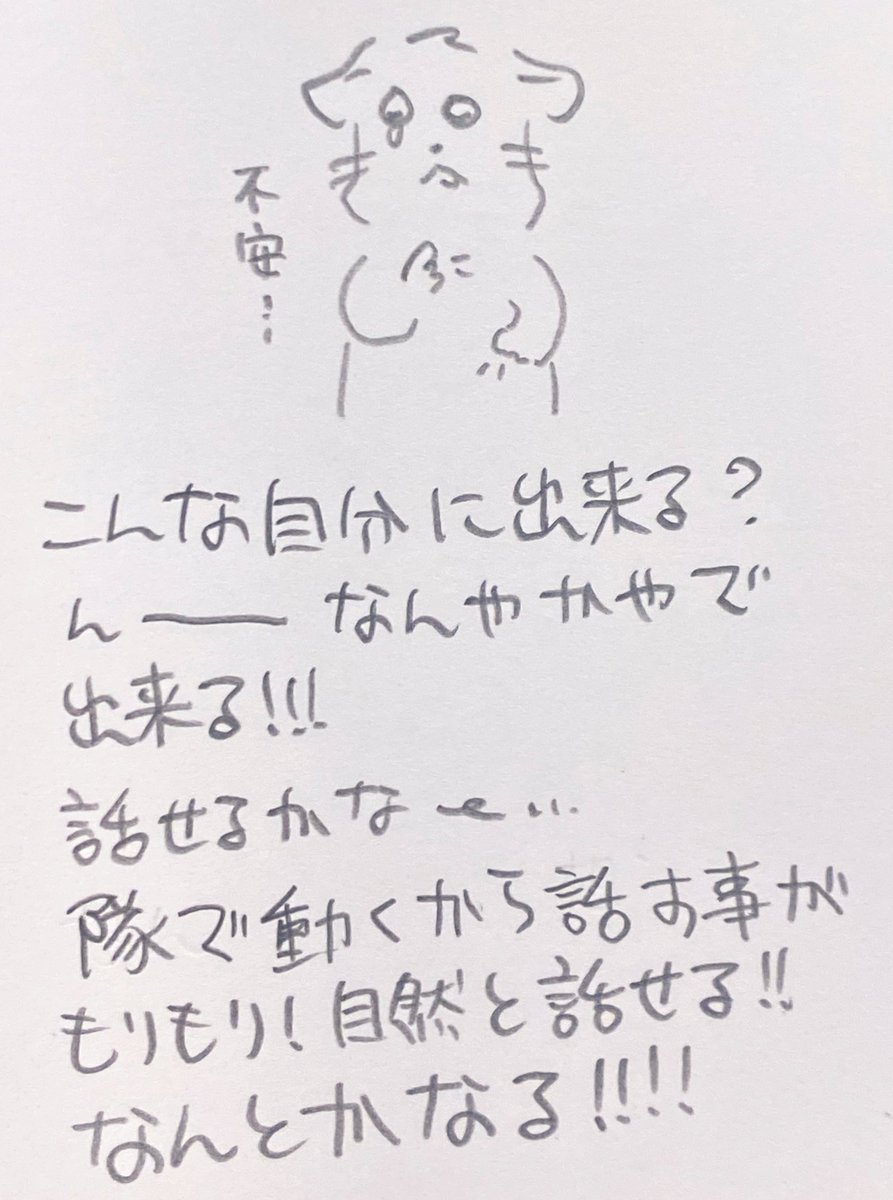 不安…
こんな自分に出来る?
んーーなんやかやで
出来る!!!
話せるかな〜…
隊で動くから話す事が
もりもり!自然と話せる!!
なんとかなる!!!!